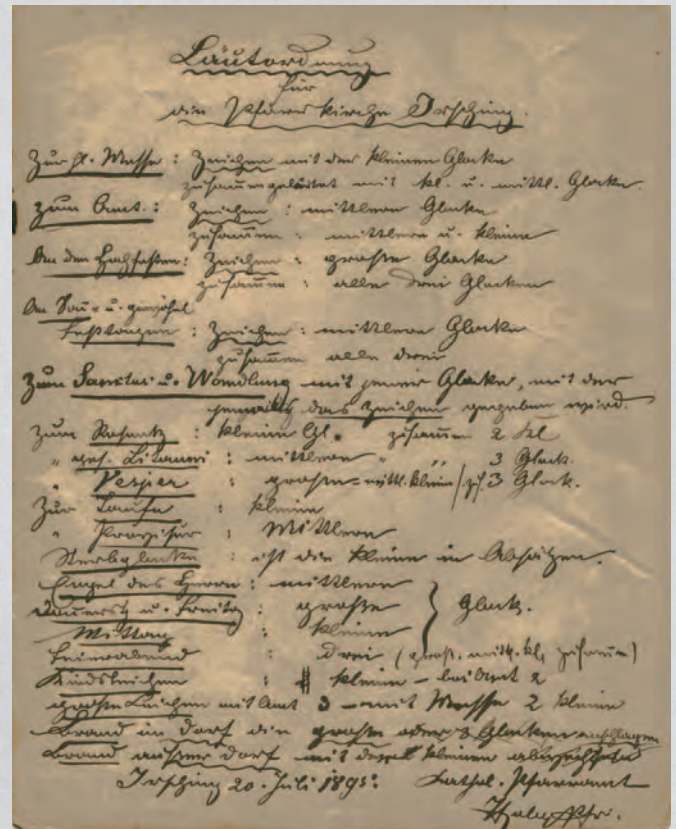 Läutordnung
für
die Pfarrkirche Irsching.
Zur hl. Messe : Zeichen mit der kleinen Glocke
zusammengeläutet mit kl. u. mittl. Glocke.
Zum Amt. : Zeichen : mittlere Glocke
zusammen : mittlere u. kleine
An den Hochfesten : Zeichen : große Glocke
zusammen : alle drei Glocken
An Sonn- u. gewöhnl
Festtagen : Zeichen : mittlere Glocke
zusammen alle drei
Zum Sanctus u. Wandlung mit jener Glocke, mit der
jeweils das Zeichen gegeben wird.
Zum Rosenkr : kleine Gl. zusamm 2 kl
" ges. Litanei : mittlere " " 3 Glock.
" Vesper : große = mittl. kleine / zus. 3 Glock.
Zur Taufe : kleine
" Provisur : Mittlere
Sterbglocke : ist die kleine in Absätzen.
Engel des Herrn : mittlere
Donnerst u. Freitag : große } Glock.
Mittag : kleine
Feierabend : drei (groß. mittl. kl. zusamm)
Kindsleichen : kleine – bei Amt 2
große Leichen mit Amt 3 – mit Messe 2 kleine
Brand in Dorf die große oder 3 Glocken anschlagen
Brand außer Dorf mit der kleinen
Irsching 20. Juli 1895. Kathol. Pfarramt